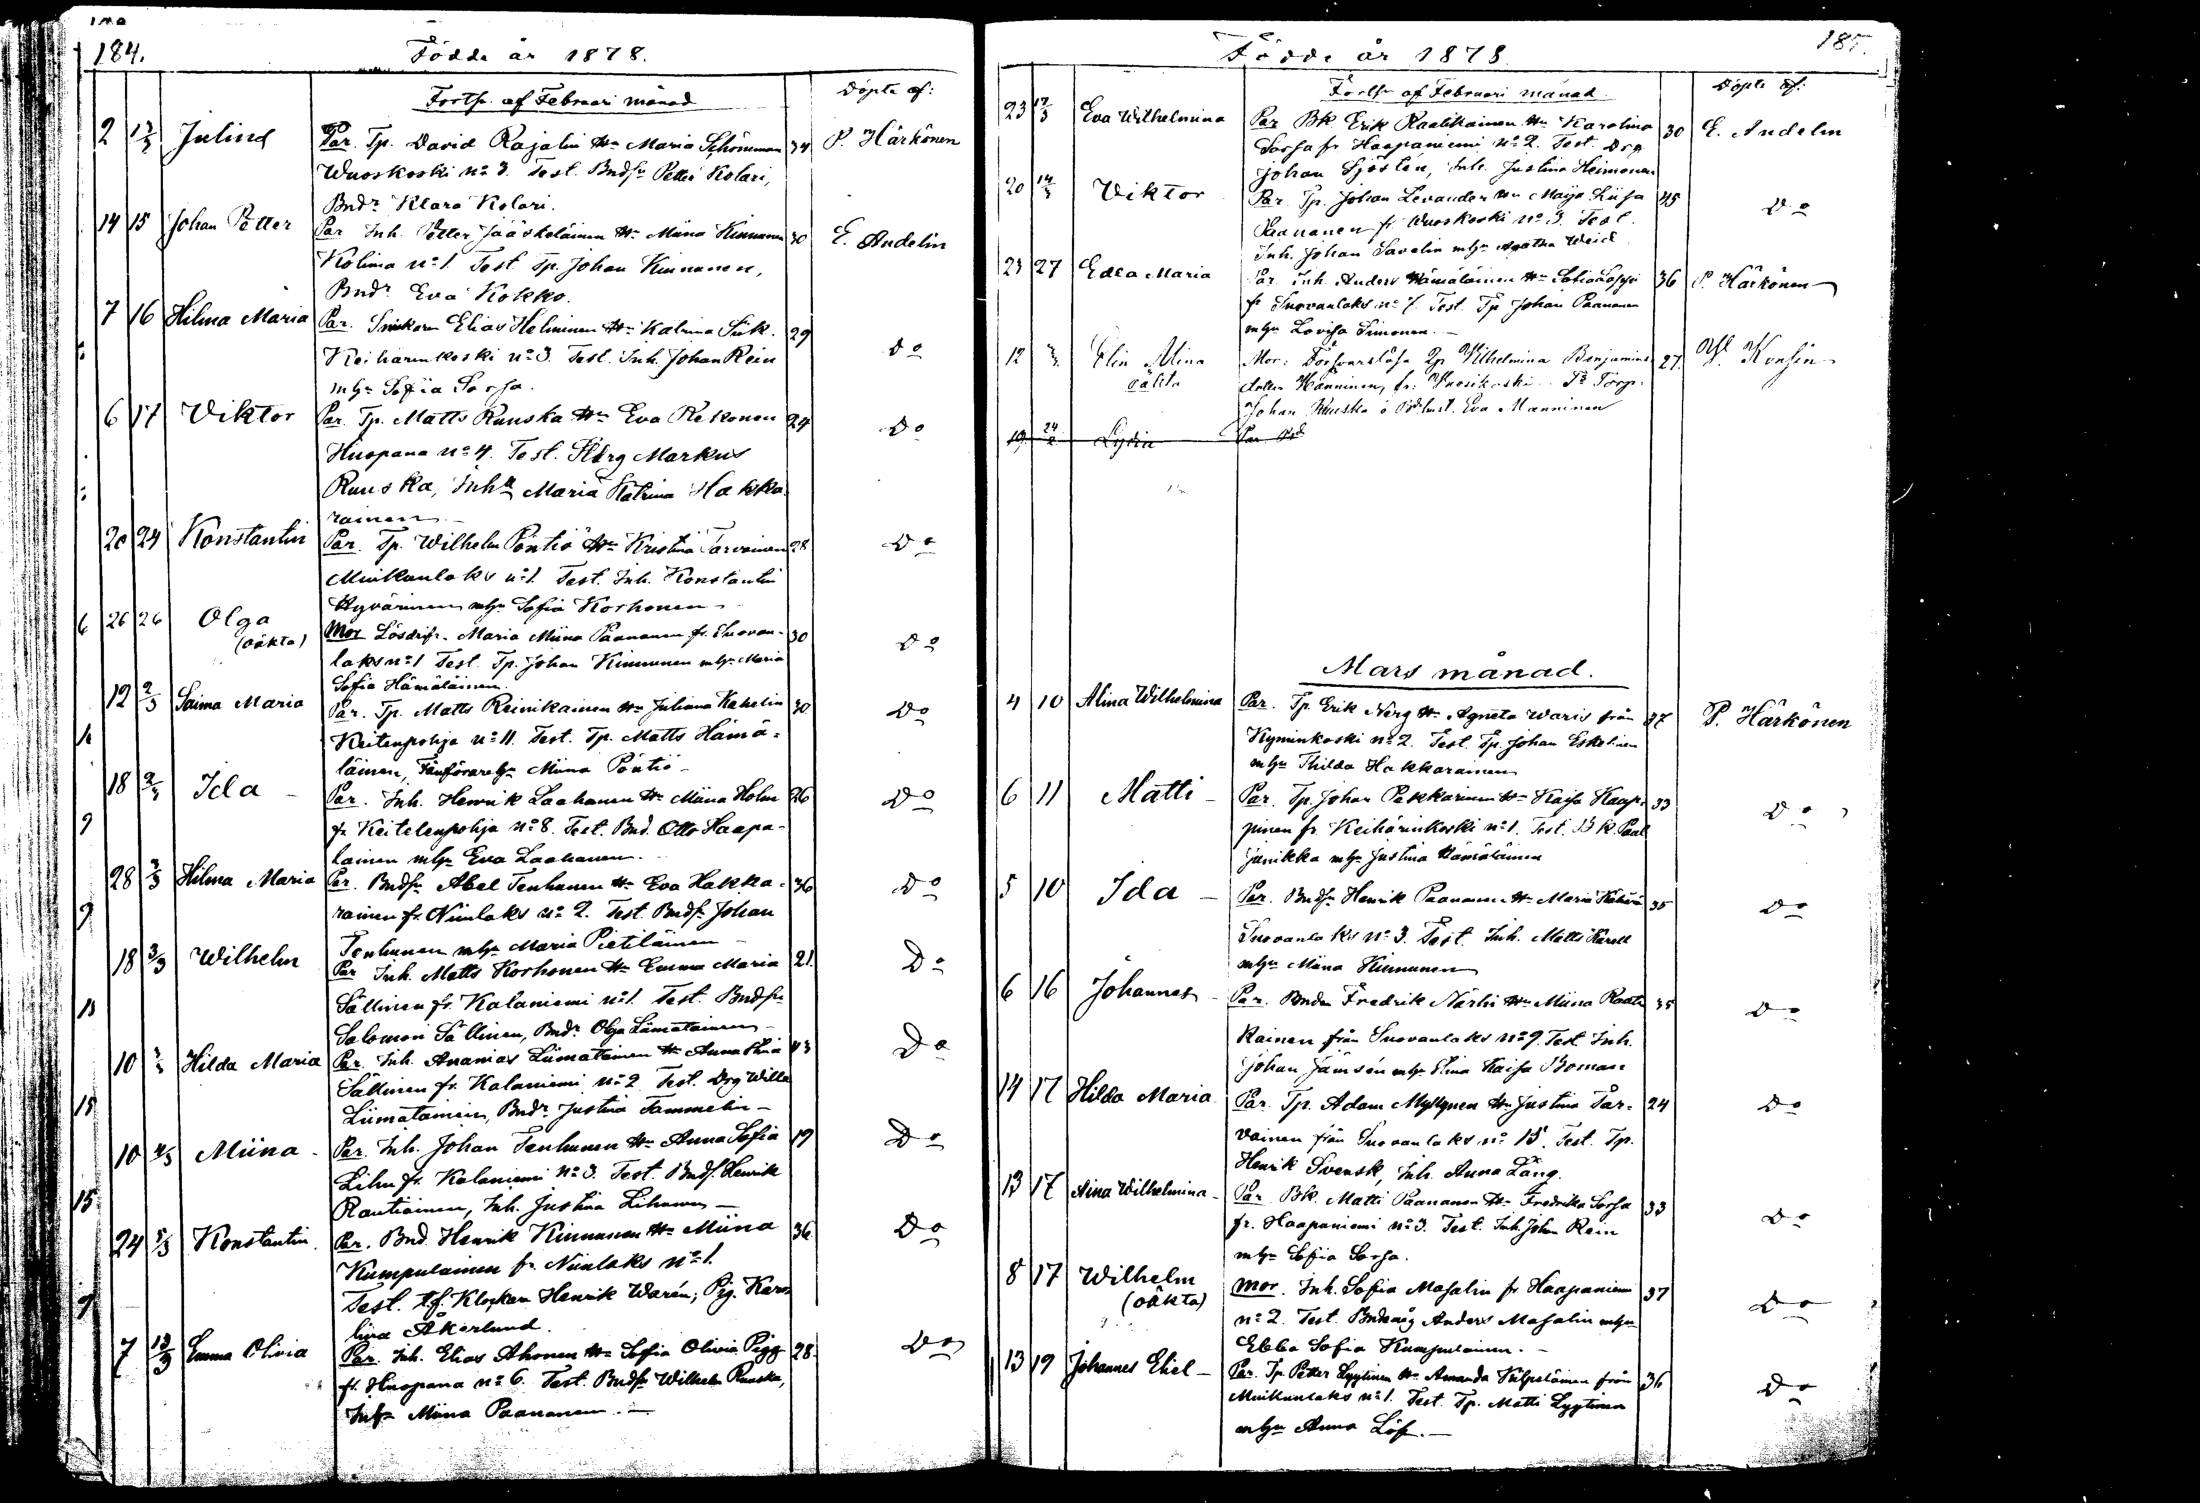 184.
Födde år 1878.
Forts. af Februari månad
Döpte af:
2 13/3 Julina Par. Tp. David Rajalin Hu Maria Schönman 34 P. Härkönen
Wuoskoski No 3. Test. Bndsn Petter Kolari,
Bndr Klara Kolari.
14 15 Johan Petter Par. Inh. Petter Jääskeläinen Hu Miina Kinnunen 30 E. Andelin
Kolima No 1. Test. Tp. Johan Kinnunen,
Bndr Eva Kokko.
7 16 Hilma Maria Par. Snickaren Elias Helminen Hu Katrina Siik. 29 Do
Keihärinkoski No 3. Test. Inh. Johan Rein
mhu Sofia Sorsa.
6 17 Viktor Par. Tp. Matts Ruuska Hu Eva Rekonen 24 Do
Huopana No 4. Test. Markus
Ruuska, Inh. Maria Katrina Hakka-
rainen
20 24 Konstantin Par. Tp. Wilhelm Pöntiö Hu Kristina Tarvainen 28 Do
Muikunlaks No 1. Test. Inh. Konstantin
Hyvärinen mhu Sofia Korhonen
26 26 Olga Mor Lösdrifr. Maria Miina Paananen fr. Suovan- 30 Do
(oäkta) laks No 1 Test. Tp. Johan Kinnunen mhu Maria
Sofia Hämäläinen.
12 2/3 Saima Maria Par. Tp. Matts Reinikainen Hu Juliana Kahelin 30 Do
Keitelepohja No 11. Test. Tp. Matts Hämä-
läinen, Miina Pöntiö
18 2/3 Ida Par. Inh. Henrik Laahanen Hu Miina Holm 26 Do
fr. Keitelenpohja No 8. Test. Bnd. Otto Haapa-
lainen mhu Eva Laahanen.
28 3/3 Hilma Maria Par. Bndsn Abel Tenhunen Hu Eva Hakka- 36 Do
rainen fr. Niinlaks No 2. Test. Bndsn Johan
Tenhunen mhu Maria Pietiläinen
18 3/3 Wilhelm Par. Inh. Matts Korhonen Hu Emma Maria 21. Do
Sällinen fr. Kalaniemi No 1. Test. Bndsn
Salomon Sällinen, Bndr Olga Liimatainen
10 Hilda Maria Par. Inh. Ananias Liimatainen Hu Anna Stina 43 Do
Sällinen fr. Kalaniemi No 2. Test. Drg Wille
Liimatainen, Bndr Justina Tammelin
10 4/3 Miina Par. Inh. Johan Tenhunen Hu Anna Sofia 19 Do
Lihu fr. Kalaniemi No 3. Test. Bnds. Henrik
Rautiainen, Inh. Justina Lihunen
24 5/3 Konstantin. Par. Bnd. Henrik Kinnunen Hu Miina 36 Do
Kumpulainen fr. Niinlaks No 1.
Test. t.f. Klockar Henrik Warén, Pig. Karo-
lina Åkerlund.
7 13/3 Emma Olivia Par. Inh. Elias Ahonen Hu Sofia Olivia Pigg 28. Do
fr. Huopana No 6. Test. Bndsn Wilhelm Ruuska,
Inh. Miina Paananen.
185.
Födde år 1878.
Forts. af Februari månad.
Döpte af:
23 12/3 Eva Wilhelmina Par. Bk Erik Raatikainen Hu Karolina 30 E. Andelin
Sorsa fr. Haapaniemi No 2. Test. Drg
Johan Sjöstén, Inh. Justina Heimonen
20 14/3 Viktor Par. Tp. Johan Levander Hu Maija Liisa 45 Do
Paananen fr. Wuoskoski No 3. Test.
Inh. Johan Savelin mhu Agatha Weid
23 27 Edla Maria Par. Inh. Anders Hämäläinen Hu Sofia Loppi 36 P. Härkönen
fr. Suovanlaks No 7. Test. Tp Johan Paananen
mhu Lovisa Simonen.
12 Elin Alina Mor: Försvarslösa Qp. Wilhelmina Benjamins 27.
oäkta dotter Hänninen, fr. Wuoskoski. Torp.
Johan Ruuska o Eva Manninen
19 24/2 Lydia Par
Mars månad.
4 10 Alina Wilhelmina Par. Tp. Erik Nerg Hu Agneta Waris från 37 P. Härkönen
Kyminkoski No 2. Test. Tp. Johan Eskelinen
mhu Thilda Hakkarainen
6 11 Matti Par. Tp. Johan Pekkarinen Hu Kaisa Haap- 33 Do
pinen fr. Keihärinkoski No 1. Test. Bk. Paul
Janikka mhu Justina Hämäläinen
5 10 Ida Par. Bndsn Henrik Paananen Hu Maria 35 Do
Suovanlaks No 3. Test. Inh. Matts Karell
mhu Miina Kinnunen
6 16 Johannes Par. Bnden Fredrik Närhi Hu Miina Raati 35 Do
kainen från Suovanlaks No 9. Test. Inh.
Johan Jämsén mhu Stina Kaisa Boman
14 17 Hilda Maria Par. Tp. Adam Myllynen Hu Justina Tar- 24 Do
vainen från Suovanlaks No 15. Test. Tp.
Henrik Svensk, Inh. Anna Lång.
13 17 Aina Wilhelmina Par. Bk. Matti Paananen Hu Fredrika Sorsa 33 Do
fr. Haapaniemi No 3. Test. Inh. Johan Rein
mhu Sofia Sorsa.
8 17 Wilhelm Mor. Inh. Sofia Masalin fr Haapaniemi 37 Do
(oäkta) No 2. Test. Bndemåg Anders Masalin mhu
Ebba Sofia Kumpulainen.
13 19 Johannes Eliel Par. Tp. Petter Lyytinen Hu Amanda Kilpeläinen från 36 Do
Muikunlaks No 1. Test. Tp. Matti Lyytinen
mhu Anna Löf.